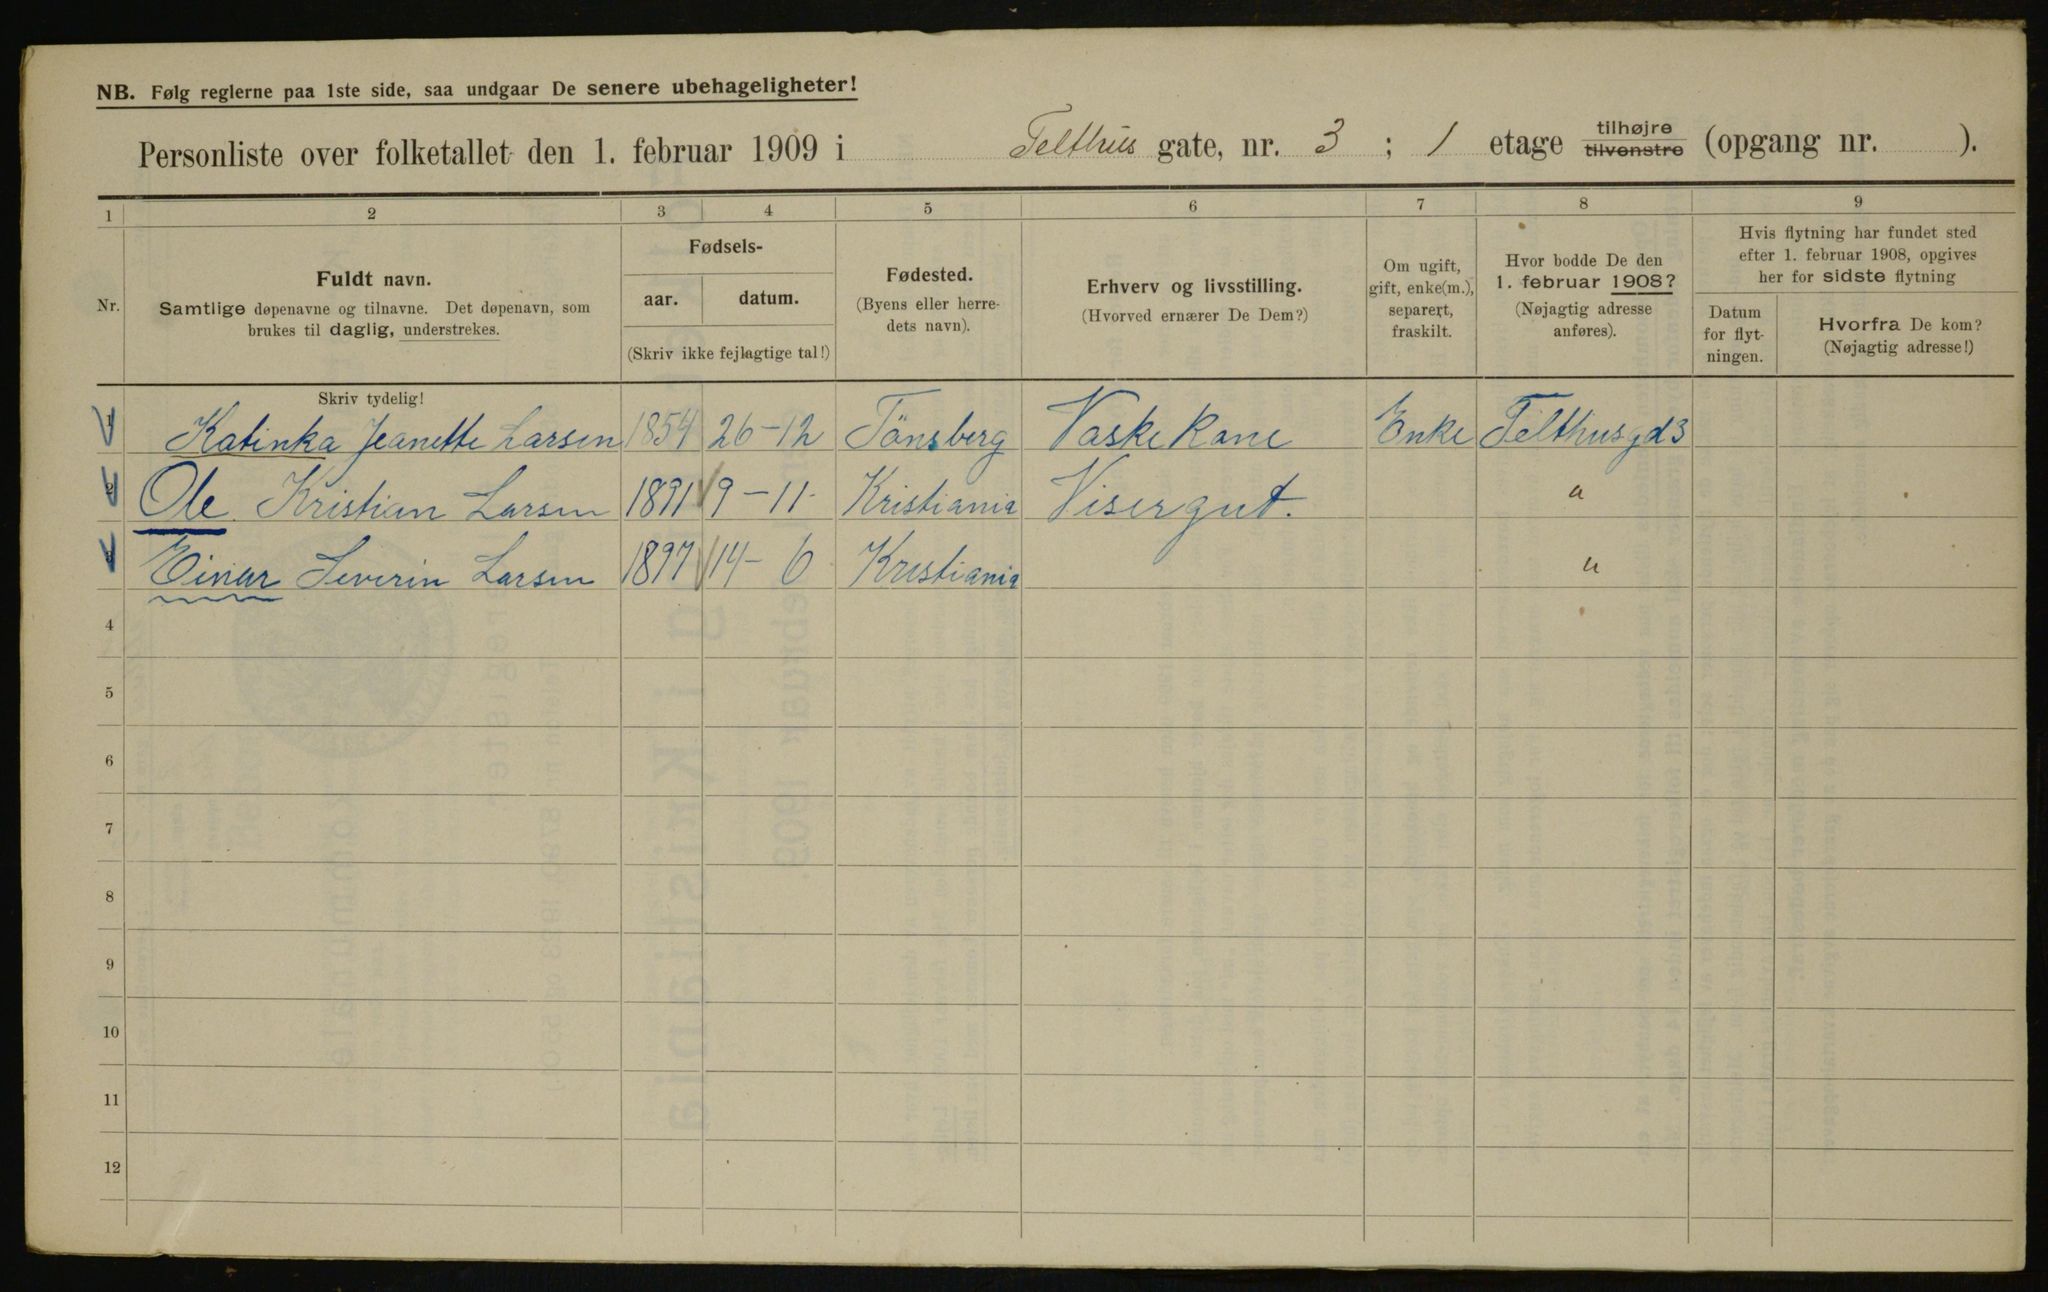 NB. Følg reglerne paa 1ste side, saa undgaar De senere ubehageligheter!
Personliste over folketallet den 1. februar 1909 i Telthus gate, nr. 3 ; 1 etage tilhøjre tilvenstre (opgang nr. ).
1 2 3 4 5 6 7 8 9
Nr.
Fuldt navn.
Samtlige døpenavne og tilnavne. Det døpenavn, som
brukes til daglig, understrekes.
Fødsels-
aar. datum.
(Skriv ikke fejlagtige tal!)
Fødested.
(Byens eller herre-
dets navn).
Erhverv og livsstilling.
(Hvorved ernærer De Dem?)
Om ugift,
gift, enke(m.),
separert,
fraskilt.
Hvor bodde De den
1. februar 1908?
(Nøjagtig adresse
anføres).
Hvis flytning har fundet sted
efter 1. februar 1908, opgives
her for sidste flytning
Datum
for flyt-
ningen.
Hvorfra De kom?
(Nøjagtig adresse!)
Skriv tydelig!
1 Katinka Jeanette Larsen 1854 26-12 Tönsberg Vaske Kone Enke Telthusgd 3
2 Ole Kristian Larsen 1891 9-11 Kristiania Visergut. "
3 Einar Severin Larsen 1897 14-6 Kristiania "
4
5
6
7
8
9
10
11
12